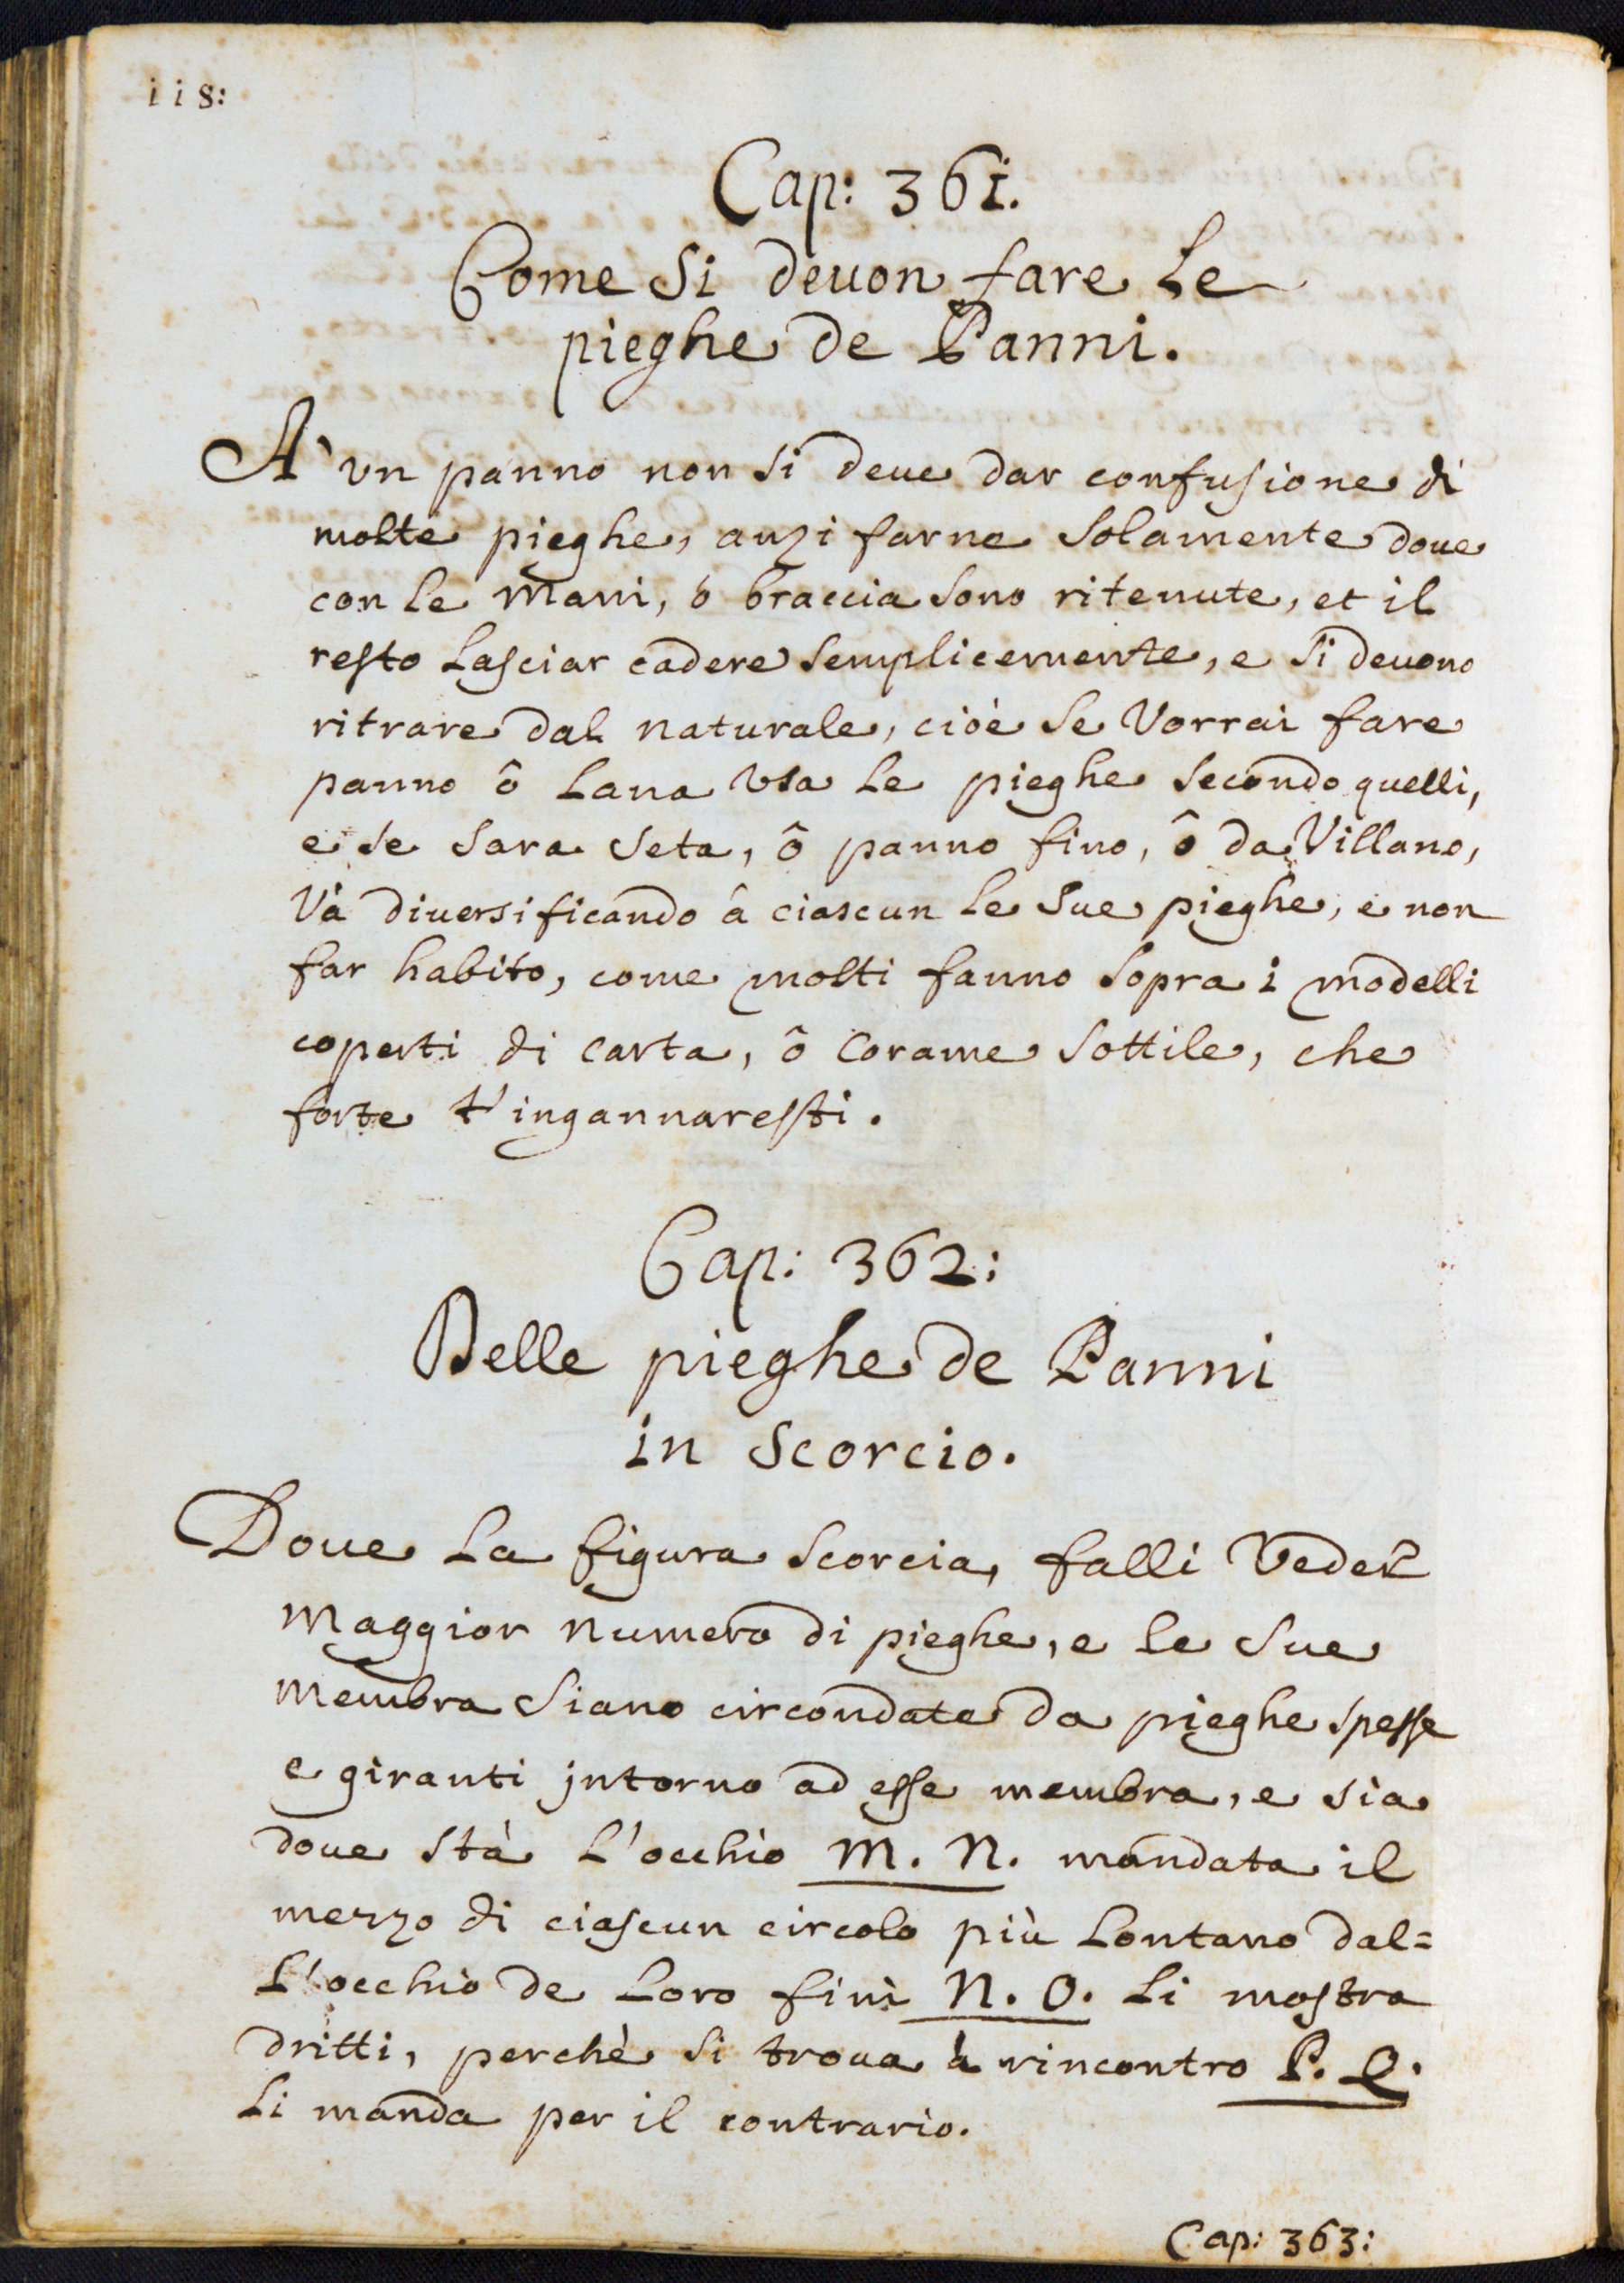 118:
Cap: 361.
Come si deuon fare le
pieghe de Panni.
A' vn panno non si deue dar confusione di
molte pieghe, anzi farne solamente doue
con le mani, ò braccia sono ritenute, et il
resto lasciar cadere semplicemente, e si deuono
ritrare dal naturale, cioè se vorrai fare
panno ô lana vsa le pieghe secondo quelli,
e se sara seta, ô panno fino, ô da Villano,
và diuersificando à ciascun le sue pieghe, e non
far habito, come molti fanno sopra i modelli
coperti di carta, ô corame sottile, che
forte t'ingannaresti.
Cap: 362:
Delle pieghe de Panni
in scorcio.
Doue la figura scorcia, falli veder
maggior numero di pieghe, e le sue
membra siano circondate da pieghe spesse
e giranti jntorno ad esse membra, e sia
doue stà l'occhio M. N. mandata il
mezzo di ciascun circolo più lontano dal=
l'occhio de loro fini N. O. li mostra
dritti, perchè si troua à rincontro P. Q.
li manda per il contrario.
Cap: 363: